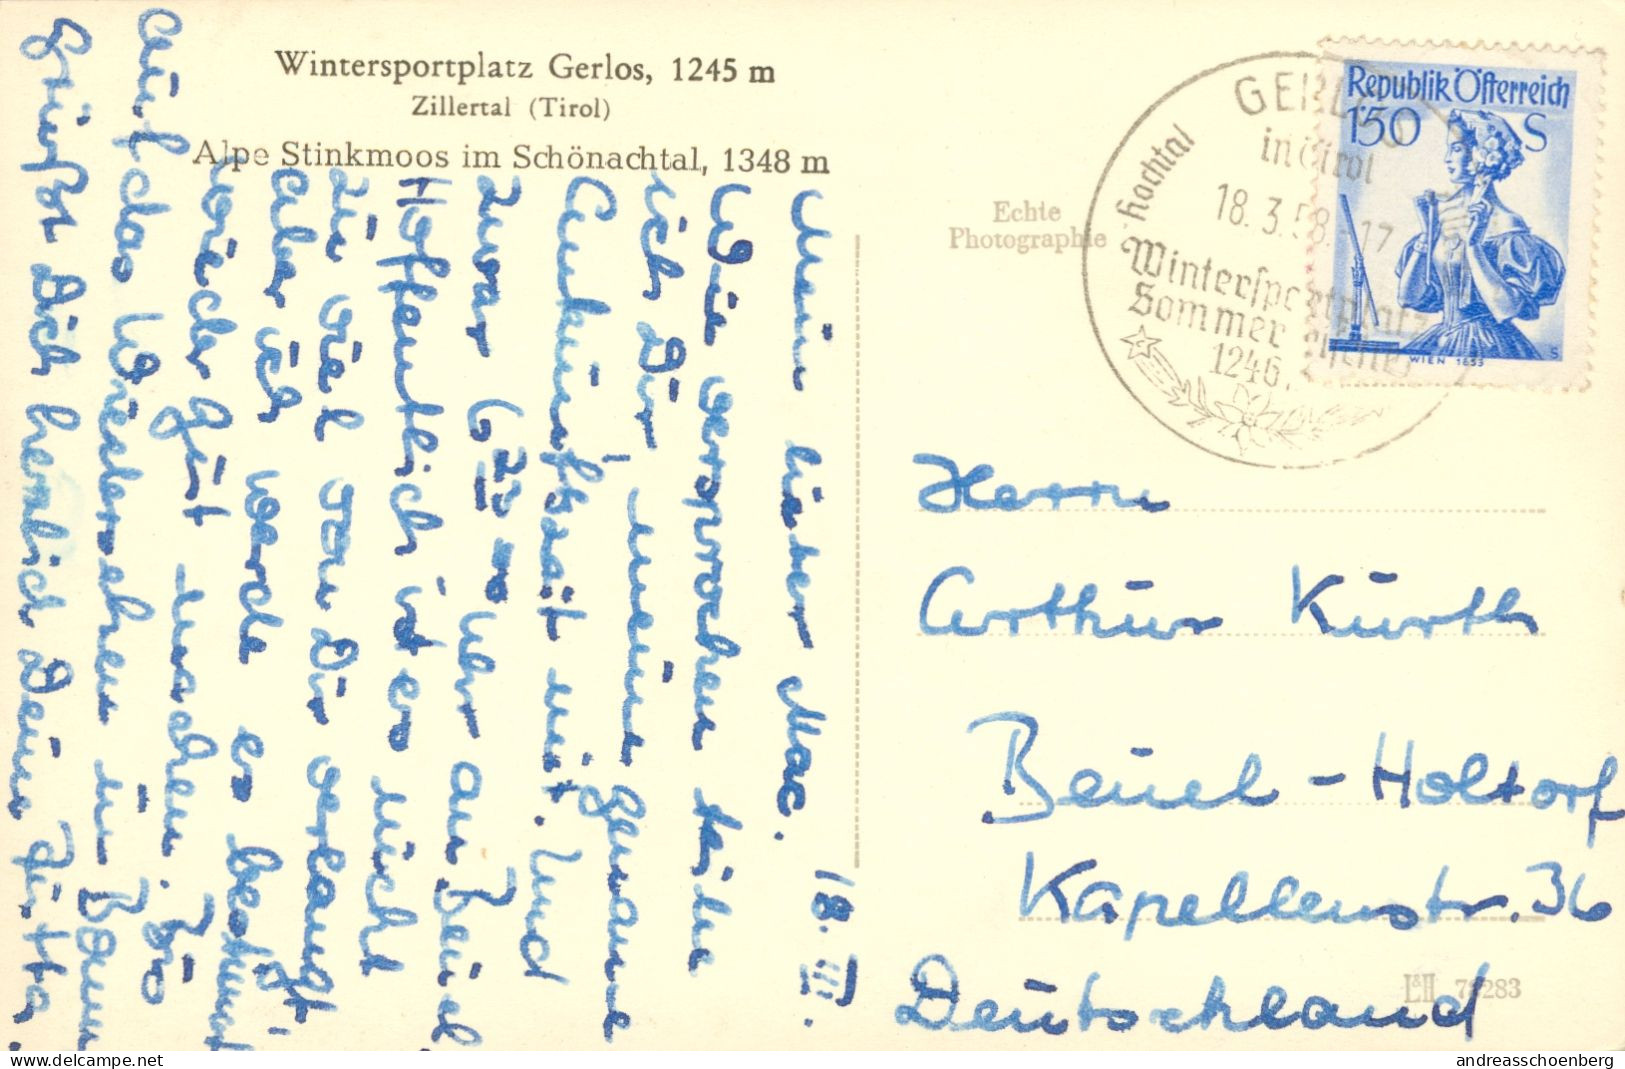 Wintersportplatz Gerlos, 1245 m
Zillertal (Tirol)
Alpe Stinkmoos im Schönachtal, 1348 m
Echte
Photographie
GERLOS
in Tirol
18.3.58. 17
Hochtal
Wintersportplatz
Sommer
1246
Republik Österreich
1'50 S
WIEN 1853
18. III.
Mein lieber Mac.
Wie versprochen teile
ich Dir meine genaue
Ankunftszeit mit. Und
zwar 6 23 Uhr an Beuel
Hoffentlich ist es nicht
zu viel von Dir verlangt,
Aber ich werde es bestimmt
wieder gut machen. So
auf das Wiedersehen in Bonn
Grüßt Dich herzlich Deine Jutta.
Herrn
Arthur Kürth
Beuel - Holtorf
Kapellenstr. 36
Deutschland
L&H 78283
www.delcampe.net
andreasschoenberg